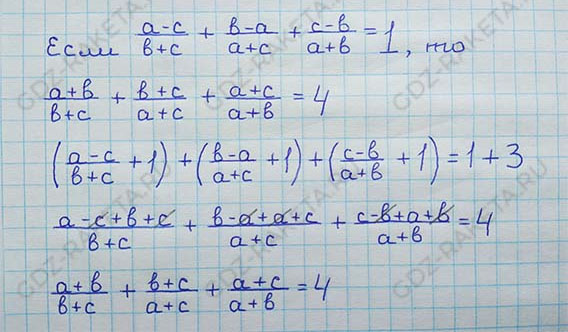 Если (a-c)/(b+c) + (b-a)/(a+c) + (c-b)/(a+b) = 1, то
(a+b)/(b+c) + (b+c)/(a+c) + (a+c)/(a+b) = 4
((a-c)/(b+c) + 1) + ((b-a)/(a+c) + 1) + ((c-b)/(a+b) + 1) = 1 + 3
(a-c+b+c)/(b+c) + (b-a+a+c)/(a+c) + (c-b+a+b)/(a+b) = 4
(a+b)/(b+c) + (b+c)/(a+c) + (a+c)/(a+b) = 4
GDZ-RAKETA.RU